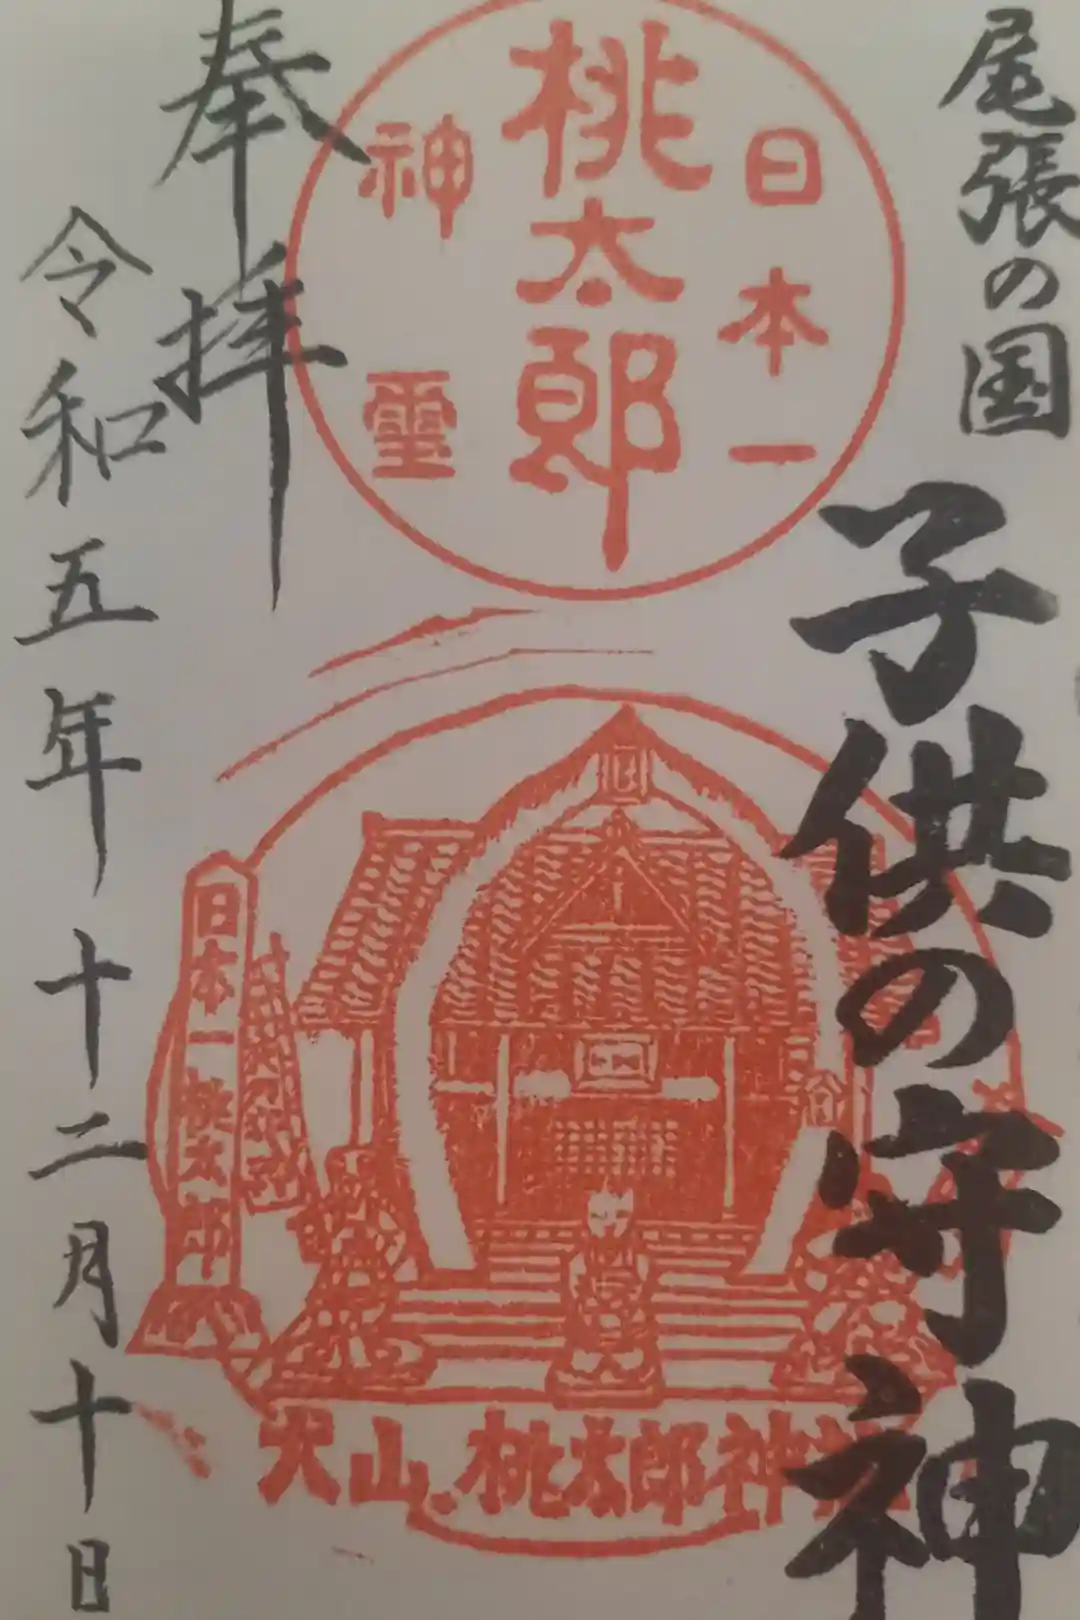 尾張の国
子供の守神
日本一
桃太郎
神霊
奉拝
日本一桃太郎
犬山桃太郎神社
令和五年十二月十日